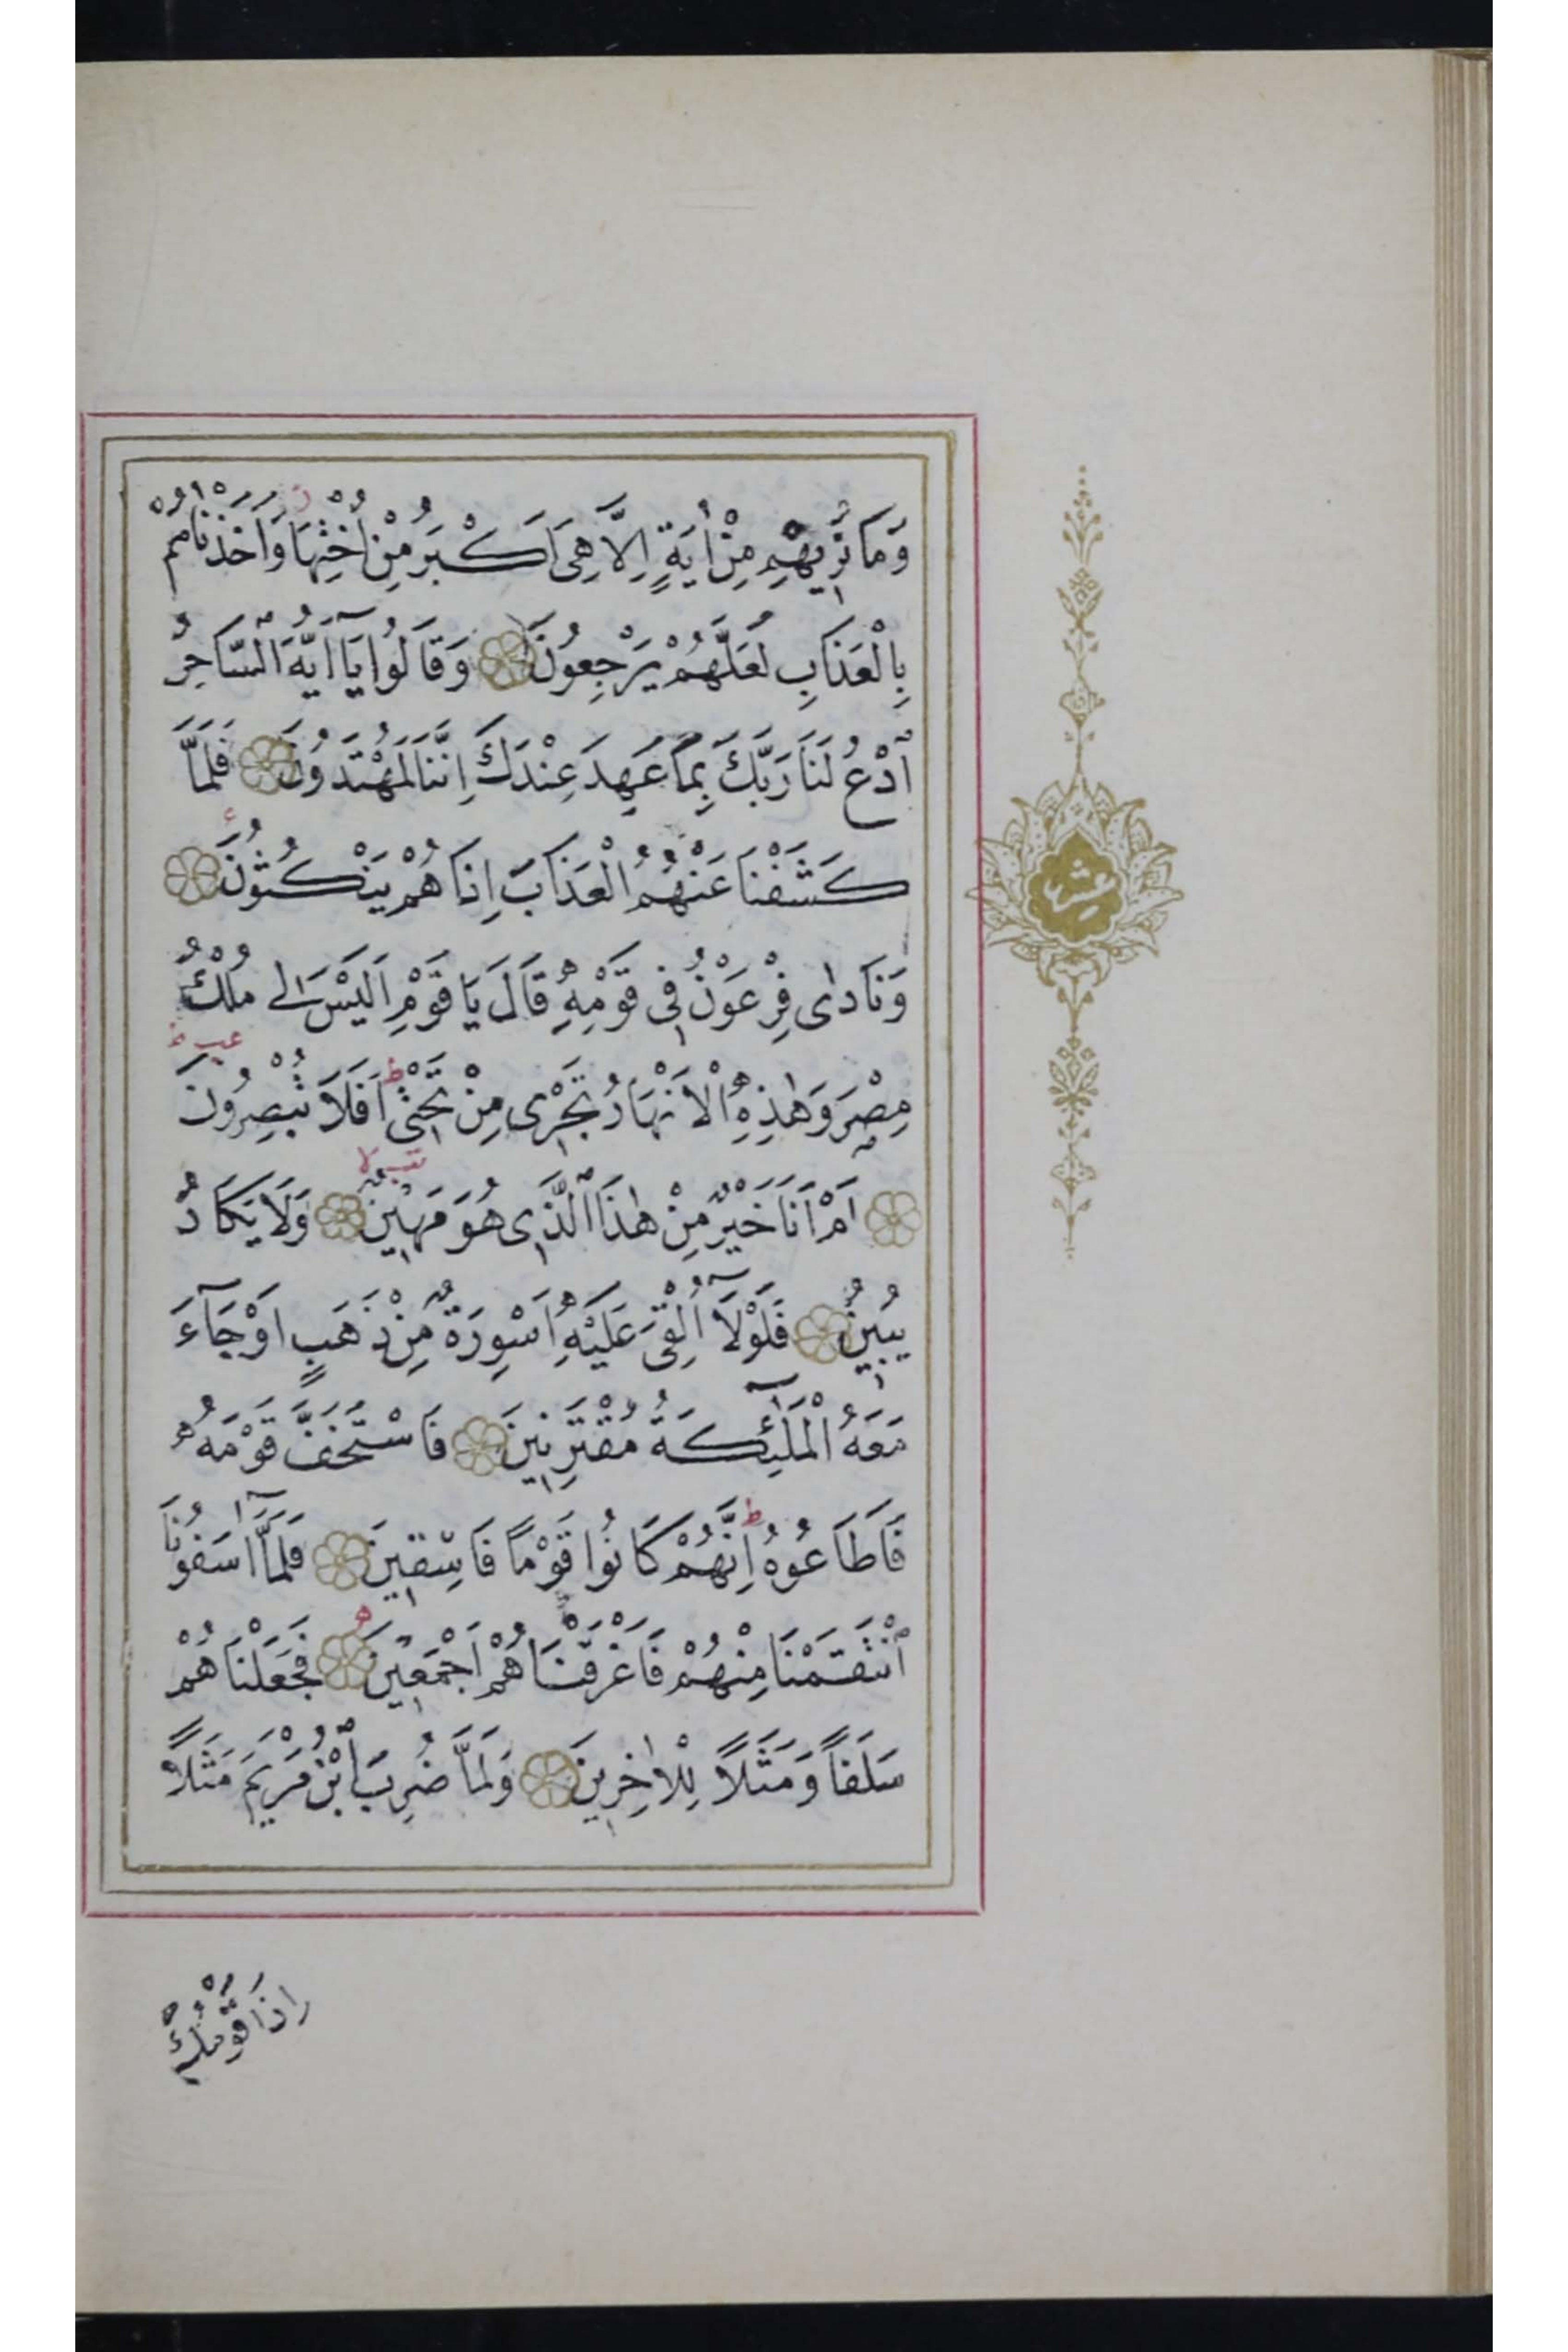 وَمَا نُرِيهِمْ مِنْ اٰيَةٍ اِلَّا هِيَ اَكْبَرُ مِنْ اُخْتِهَا وَاَخَذْنَاهُمْ
بِالْعَذَابِ لَعَلَّهُمْ يَرْجِعُونَ وَقَالُوا يَآ اَيُّهَ السَّاحِرُ
ادْعُ لَنَا رَبَّكَ بِمَا عَهِدَ عِنْدَكَ اِنَّنَا لَمُهْتَدُونَ فَلَمَّا
كَشَفْنَا عَنْهُمُ الْعَذَابَ اِذَا هُمْ يَنْكُثُونَ
وَنَادٰى فِرْعَوْنُ فِي قَوْمِهِ قَالَ يَا قَوْمِ اَلَيْسَ لِي مُلْكُ
عشر
مِصْرَ وَهٰذِهِ الْاَنْهَارُ تَجْرِي مِنْ تَحْتِي اَفَلَا تُبْصِرُونَ
اَمْ اَنَا خَيْرٌ مِنْ هٰذَا الَّذِي هُوَ مَهِينٌ وَلَا يَكَادُ
يُبِينُ فَلَوْلَآ اُلْقِيَ عَلَيْهِ اَسْوِرَةٌ مِنْ ذَهَبٍ اَوْ جَآءَ
مَعَهُ الْمَلٰٓئِكَةُ مُقْتَرِنِينَ فَاسْتَخَفَّ قَوْمَهُ
فَاَطَاعُوهُ اِنَّهُمْ كَانُوا قَوْمًا فَاسِقِينَ فَلَمَّآ اٰسَفُونَا
انْتَقَمْنَا مِنْهُمْ فَاَغْرَقْنَاهُمْ اَجْمَعِينَ فَجَعَلْنَاهُمْ
سَلَفًا وَمَثَلًا لِلْاٰخِرِينَ وَلَمَّا ضُرِبَ ابْنُ مَرْيَمَ مَثَلًا
اِذَا قَوْمُكَ